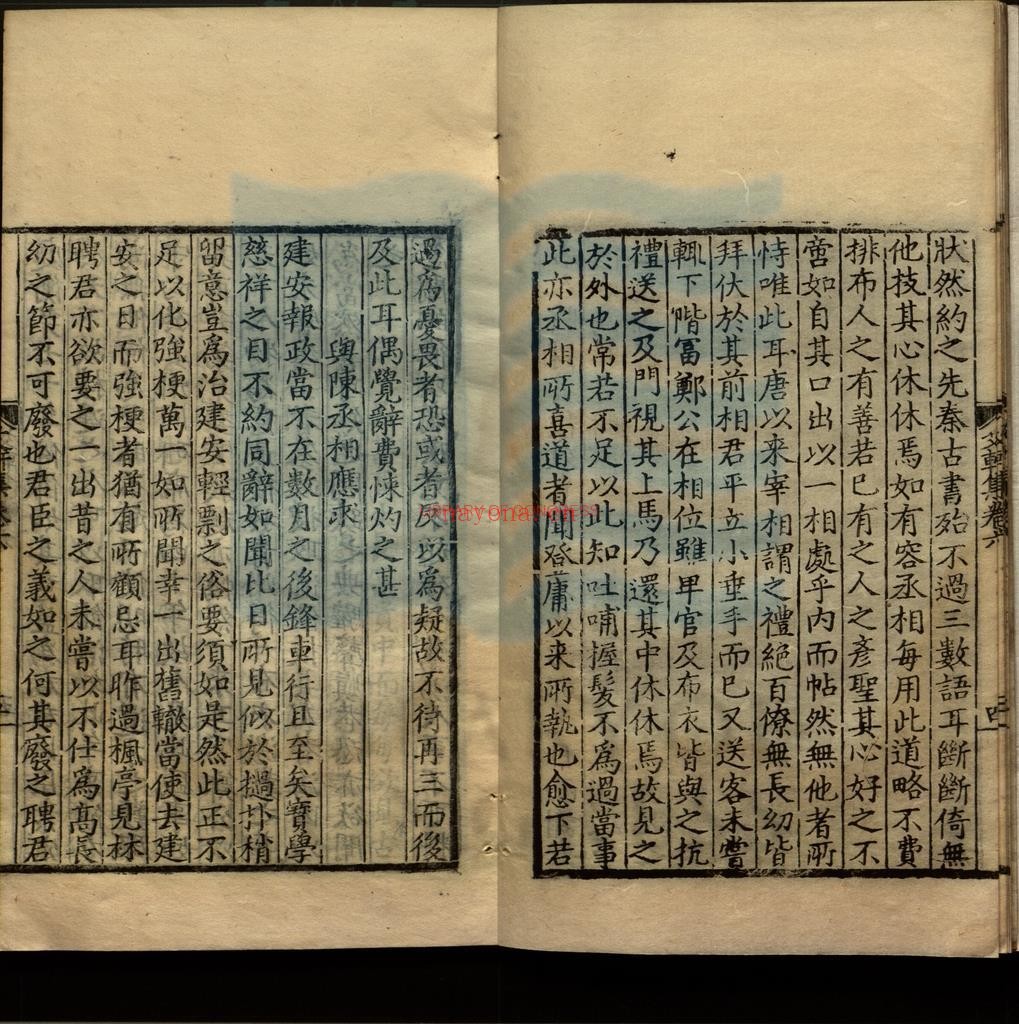 狀然約之先秦古書殆不過三數語耳斷斷倚無
他技其心休休焉如有容丞相每用此道略不費
排布人之有善若已有之人之彥聖其心好之不
啻如自其口出以一相處乎内而帖然無他者所
恃唯此耳唐以来宰相謂之禮絶百僚無長幼皆
拜伏於其前相君平立小垂手而已又送客未嘗
輒下階冨鄭公在相位雖卑官及布衣皆與之抗
禮送之及門視其上馬乃還其中休休焉故見之
於外也常若不足以此知吐哺握髮不為過當事
此亦丞相所喜道者聞登庸以来所執也愈下若
艾軒集卷六
過為憂畏者恐或者反以為疑故不待再三而後
及此耳偶覺辭費悚灼之甚
與陳丞相應求
建安報政當不在數月之後鋒車行且至矣寳學
慈祥之目不約同辭如聞比日所見似於撾扑稍
留意豈為治建安輕剽之俗要須如是然此正不
足以化強梗萬一如所聞幸一出舊轍當使去建
安之日而強梗者猶有所顧忌耳昨過楓亭見林
聘君亦欲要之一出昔之人未嘗以不仕為髙長
幼之節不可廢也君臣之義如之何其廢之聘君